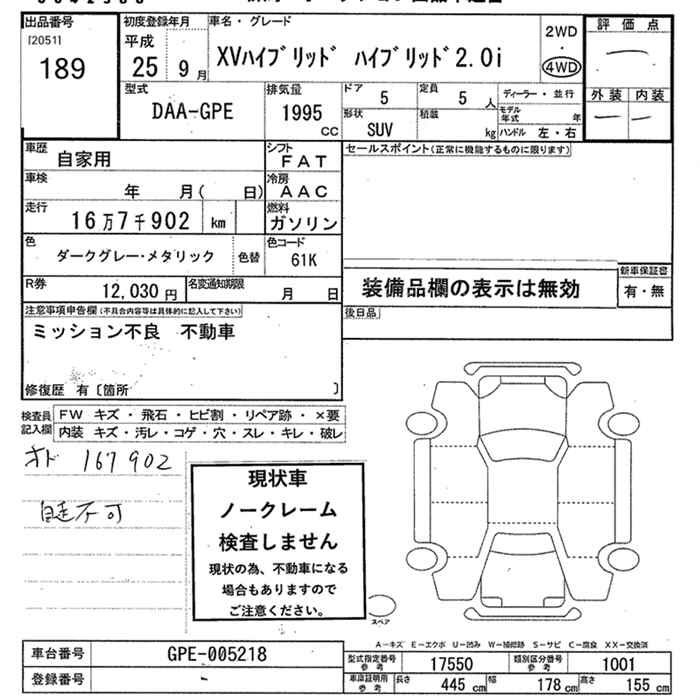 出品番号
[2051]
189
初度登録年月
平成
25 9 月
車名・グレード
XVハイブリッド ハイブリッド2.0i
2WD
・
4WD
評価点
—
外装 内装
— —
型式
DAA-GPE
排気量
1995
cc
ドア
5
定員
5 人
形状
SUV
積載
kg
ディーラー・並行
モデル年式 年
ハンドル 左・右
車歴
自家用
シフト
FAT
車検
年 月( 日)
冷房
AAC
走行
16万7千902 km
燃料
ガソリン
色
ダークグレー・メタリック
色替
色コード
61K
R券
12,030 円
名変通知期限
月 日
セールスポイント(正常に機能するものに限ります)
装備品欄の表示は無効
新車保証書
有・無
後日品
注意事項申告欄(不具合内容等は具体的に記入して下さい)
ミッション不良 不動車
修復歴 有〔箇所 〕
検査員記入欄
FW キズ・飛石・ヒビ割・リペア跡・×要
内装 キズ・汚レ・コゲ・穴・スレ・キレ・破レ
オド 167902
自走不可
現状車
ノークレーム
検査しません
現状の為、不動車になる
場合もありますので
ご注意ください。
スペア
A-キズ E-エクボ U-凹み W-補修跡 S-サビ C-腐食 XX-交換済
車台番号
GPE-005218
登録番号
-
型式指定番号
参考
17550
類別区分番号
参考
1001
車庫証明用
参考
長さ
445 cm
幅
178 cm
高さ
155 cm